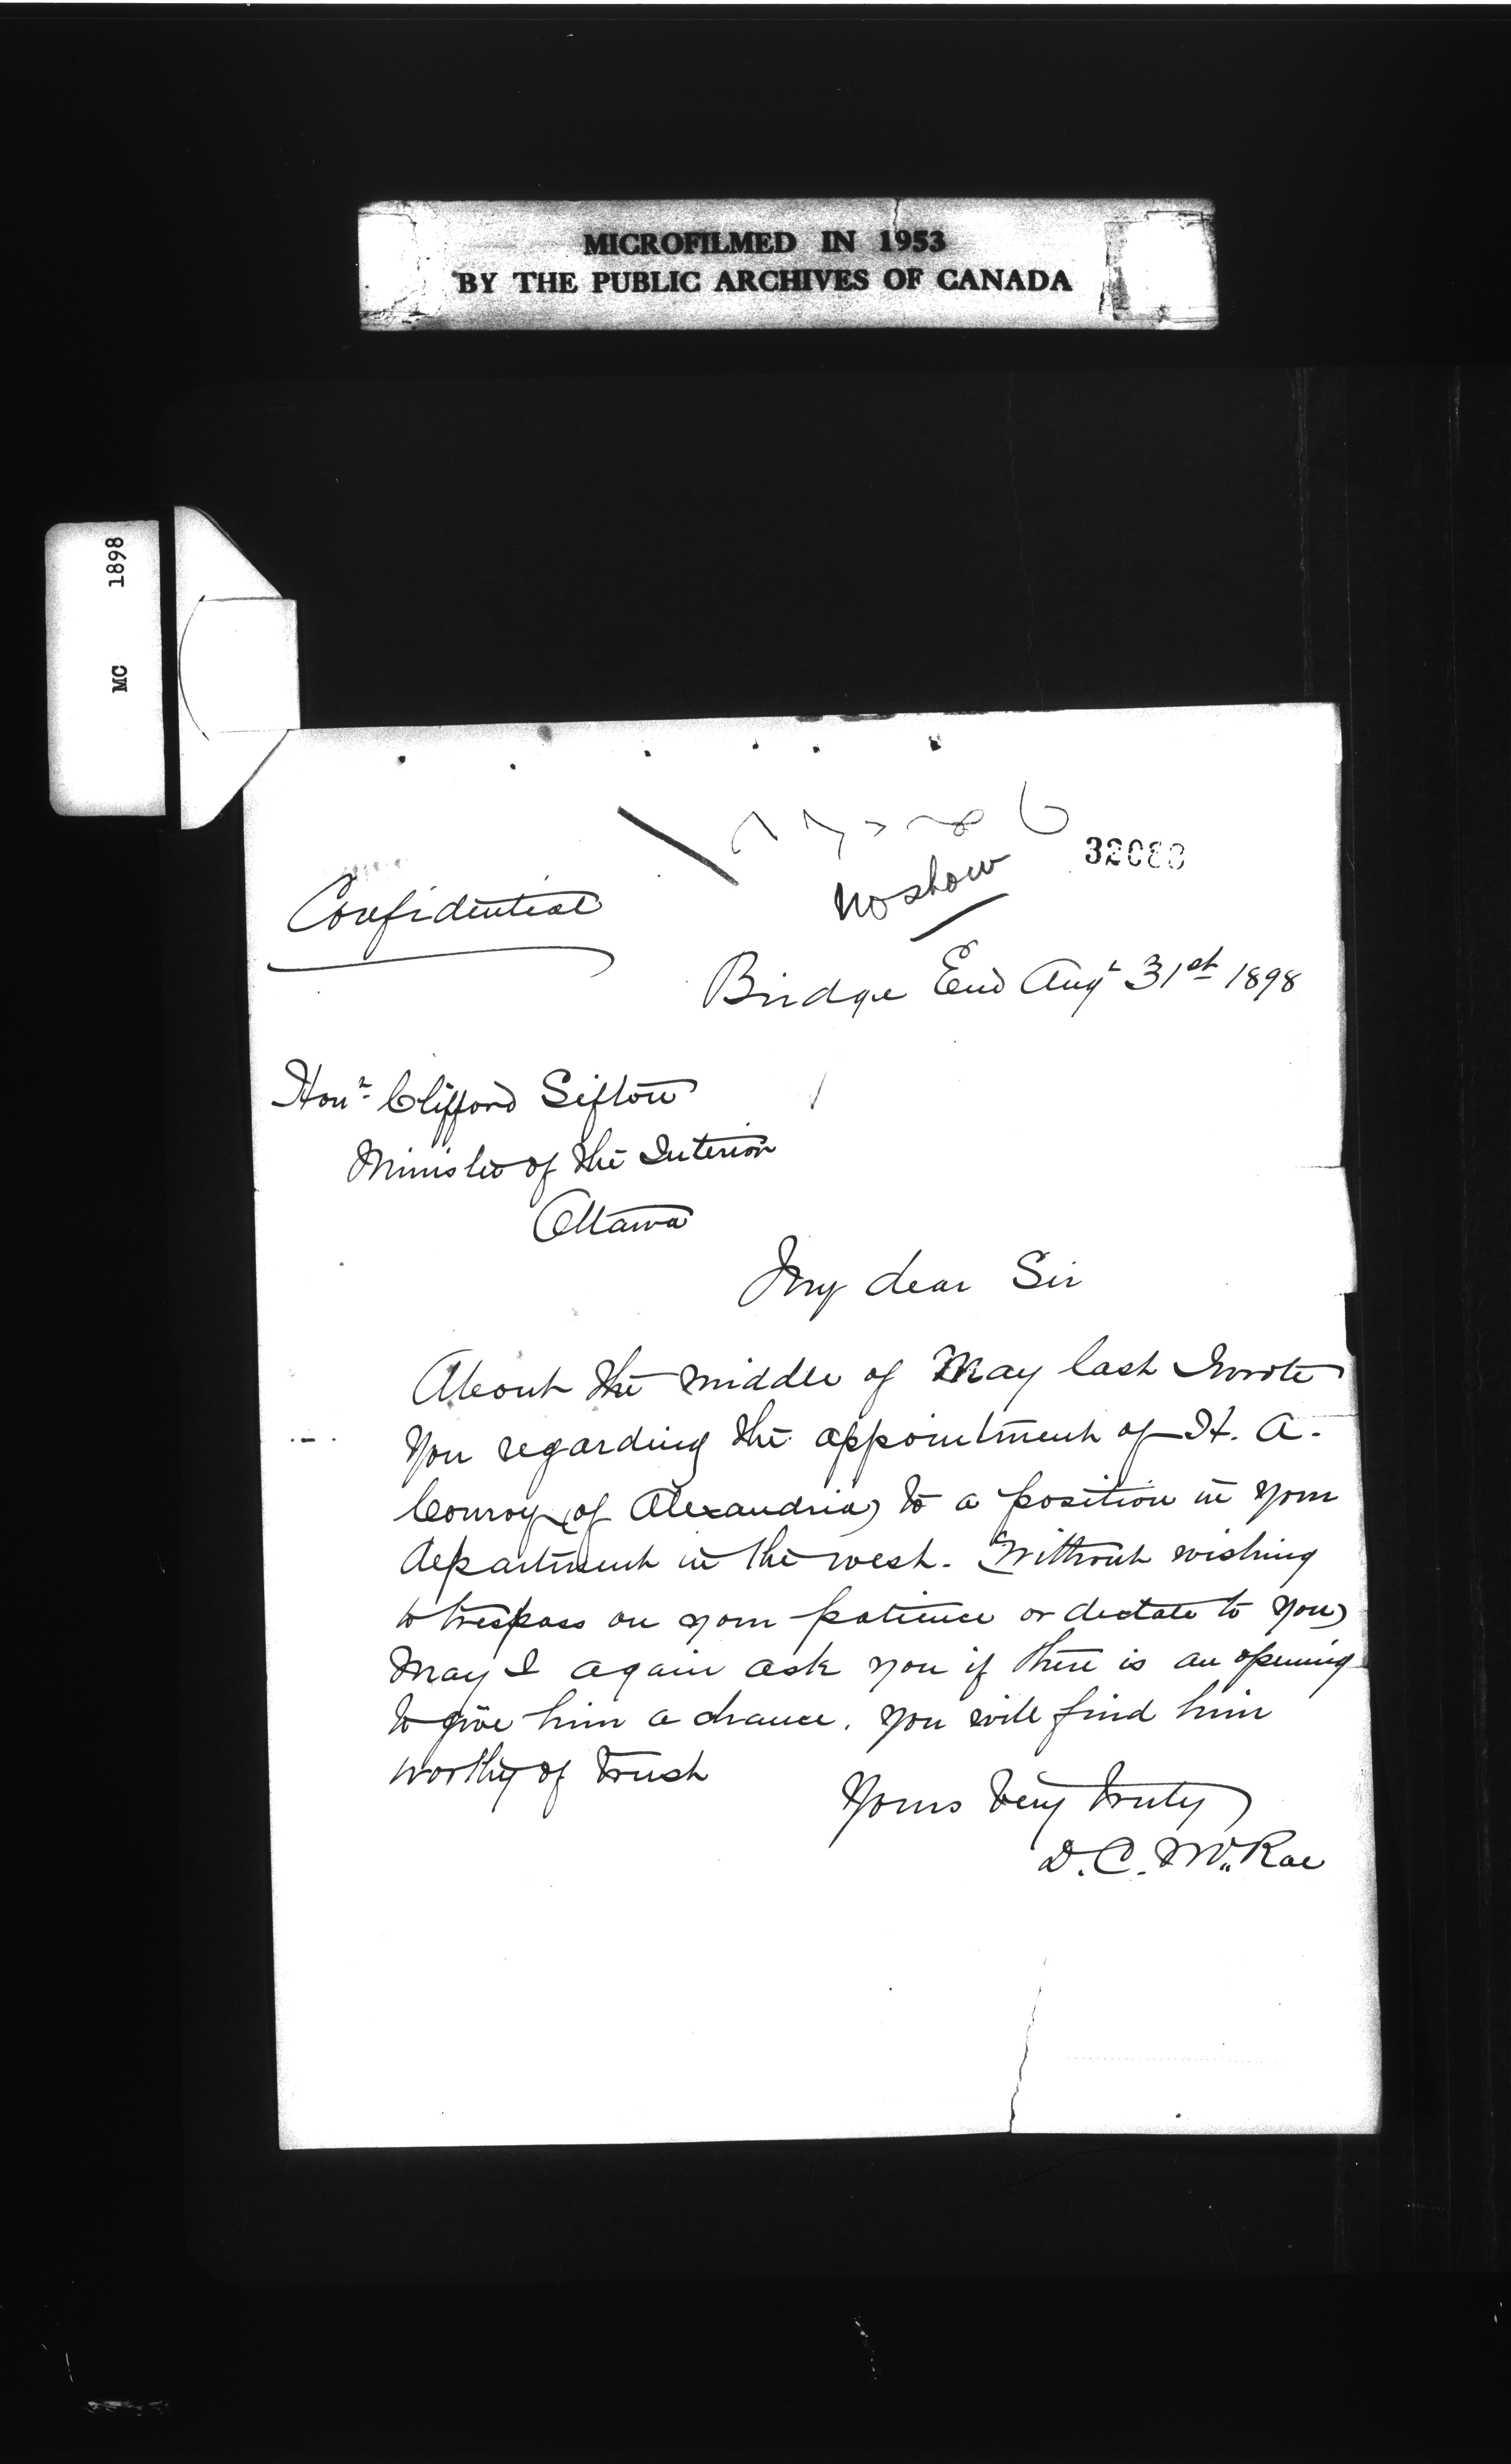 MICROFILMED IN 1953
BY THE PUBLIC ARCHIVES OF CANADA
MC 1898
no show
Confidential
Bridge End Augt 31st 1898
Honl Clifford Sifton
Minister of the Interior
Ottawa
My dear Sir
About the middle of May last I wrote
you regarding the appointment of H. A.
Conroy (of Alexandria) to a position in your
department in the west. Without wishing
to trespass on your patience or dictate to you,
May I again ask you if there is an opening
to give him a chance. You will find him
worthy of trust
Yours very truly
D. C. McRae